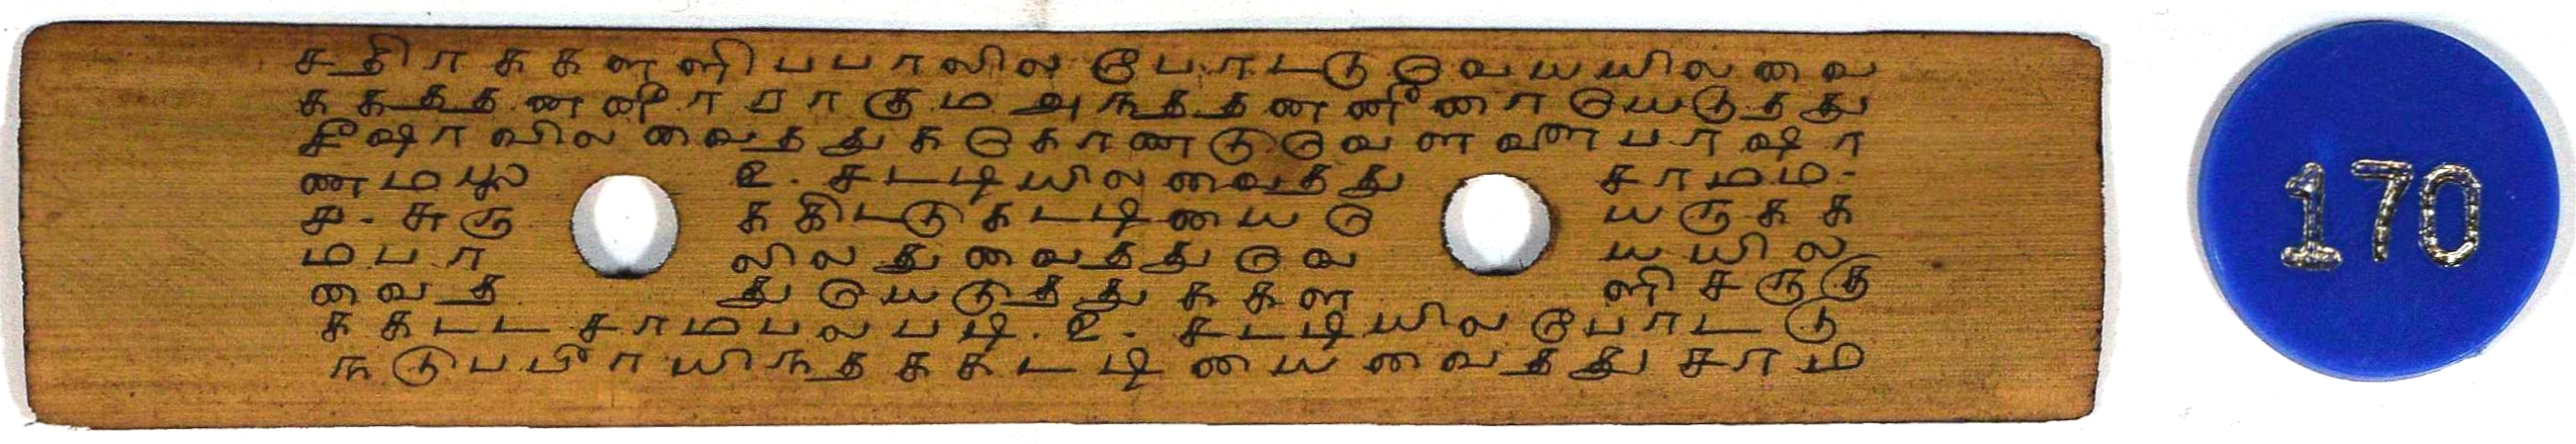 சதிராககளளிபபாலில போடடு வெயயிலவை
ககததணணீராராகும அநதததணணீரை யெடுதது
சீஷாவில வைததுககொணடு வெளவிபாஷா
ணமபல உ. சடடியில வைதது சாமம-
ச- சுரு ககிடடுகடடியை டு யருகக
மபா லிலதுவைதது வெ யயில
வைத து யெடுததுககள ளிசருகு
ககடட சாமபலபடி. உ. சடடியில போடடு
நடுபபிரயிநதககடடியை வைதது சாம
170